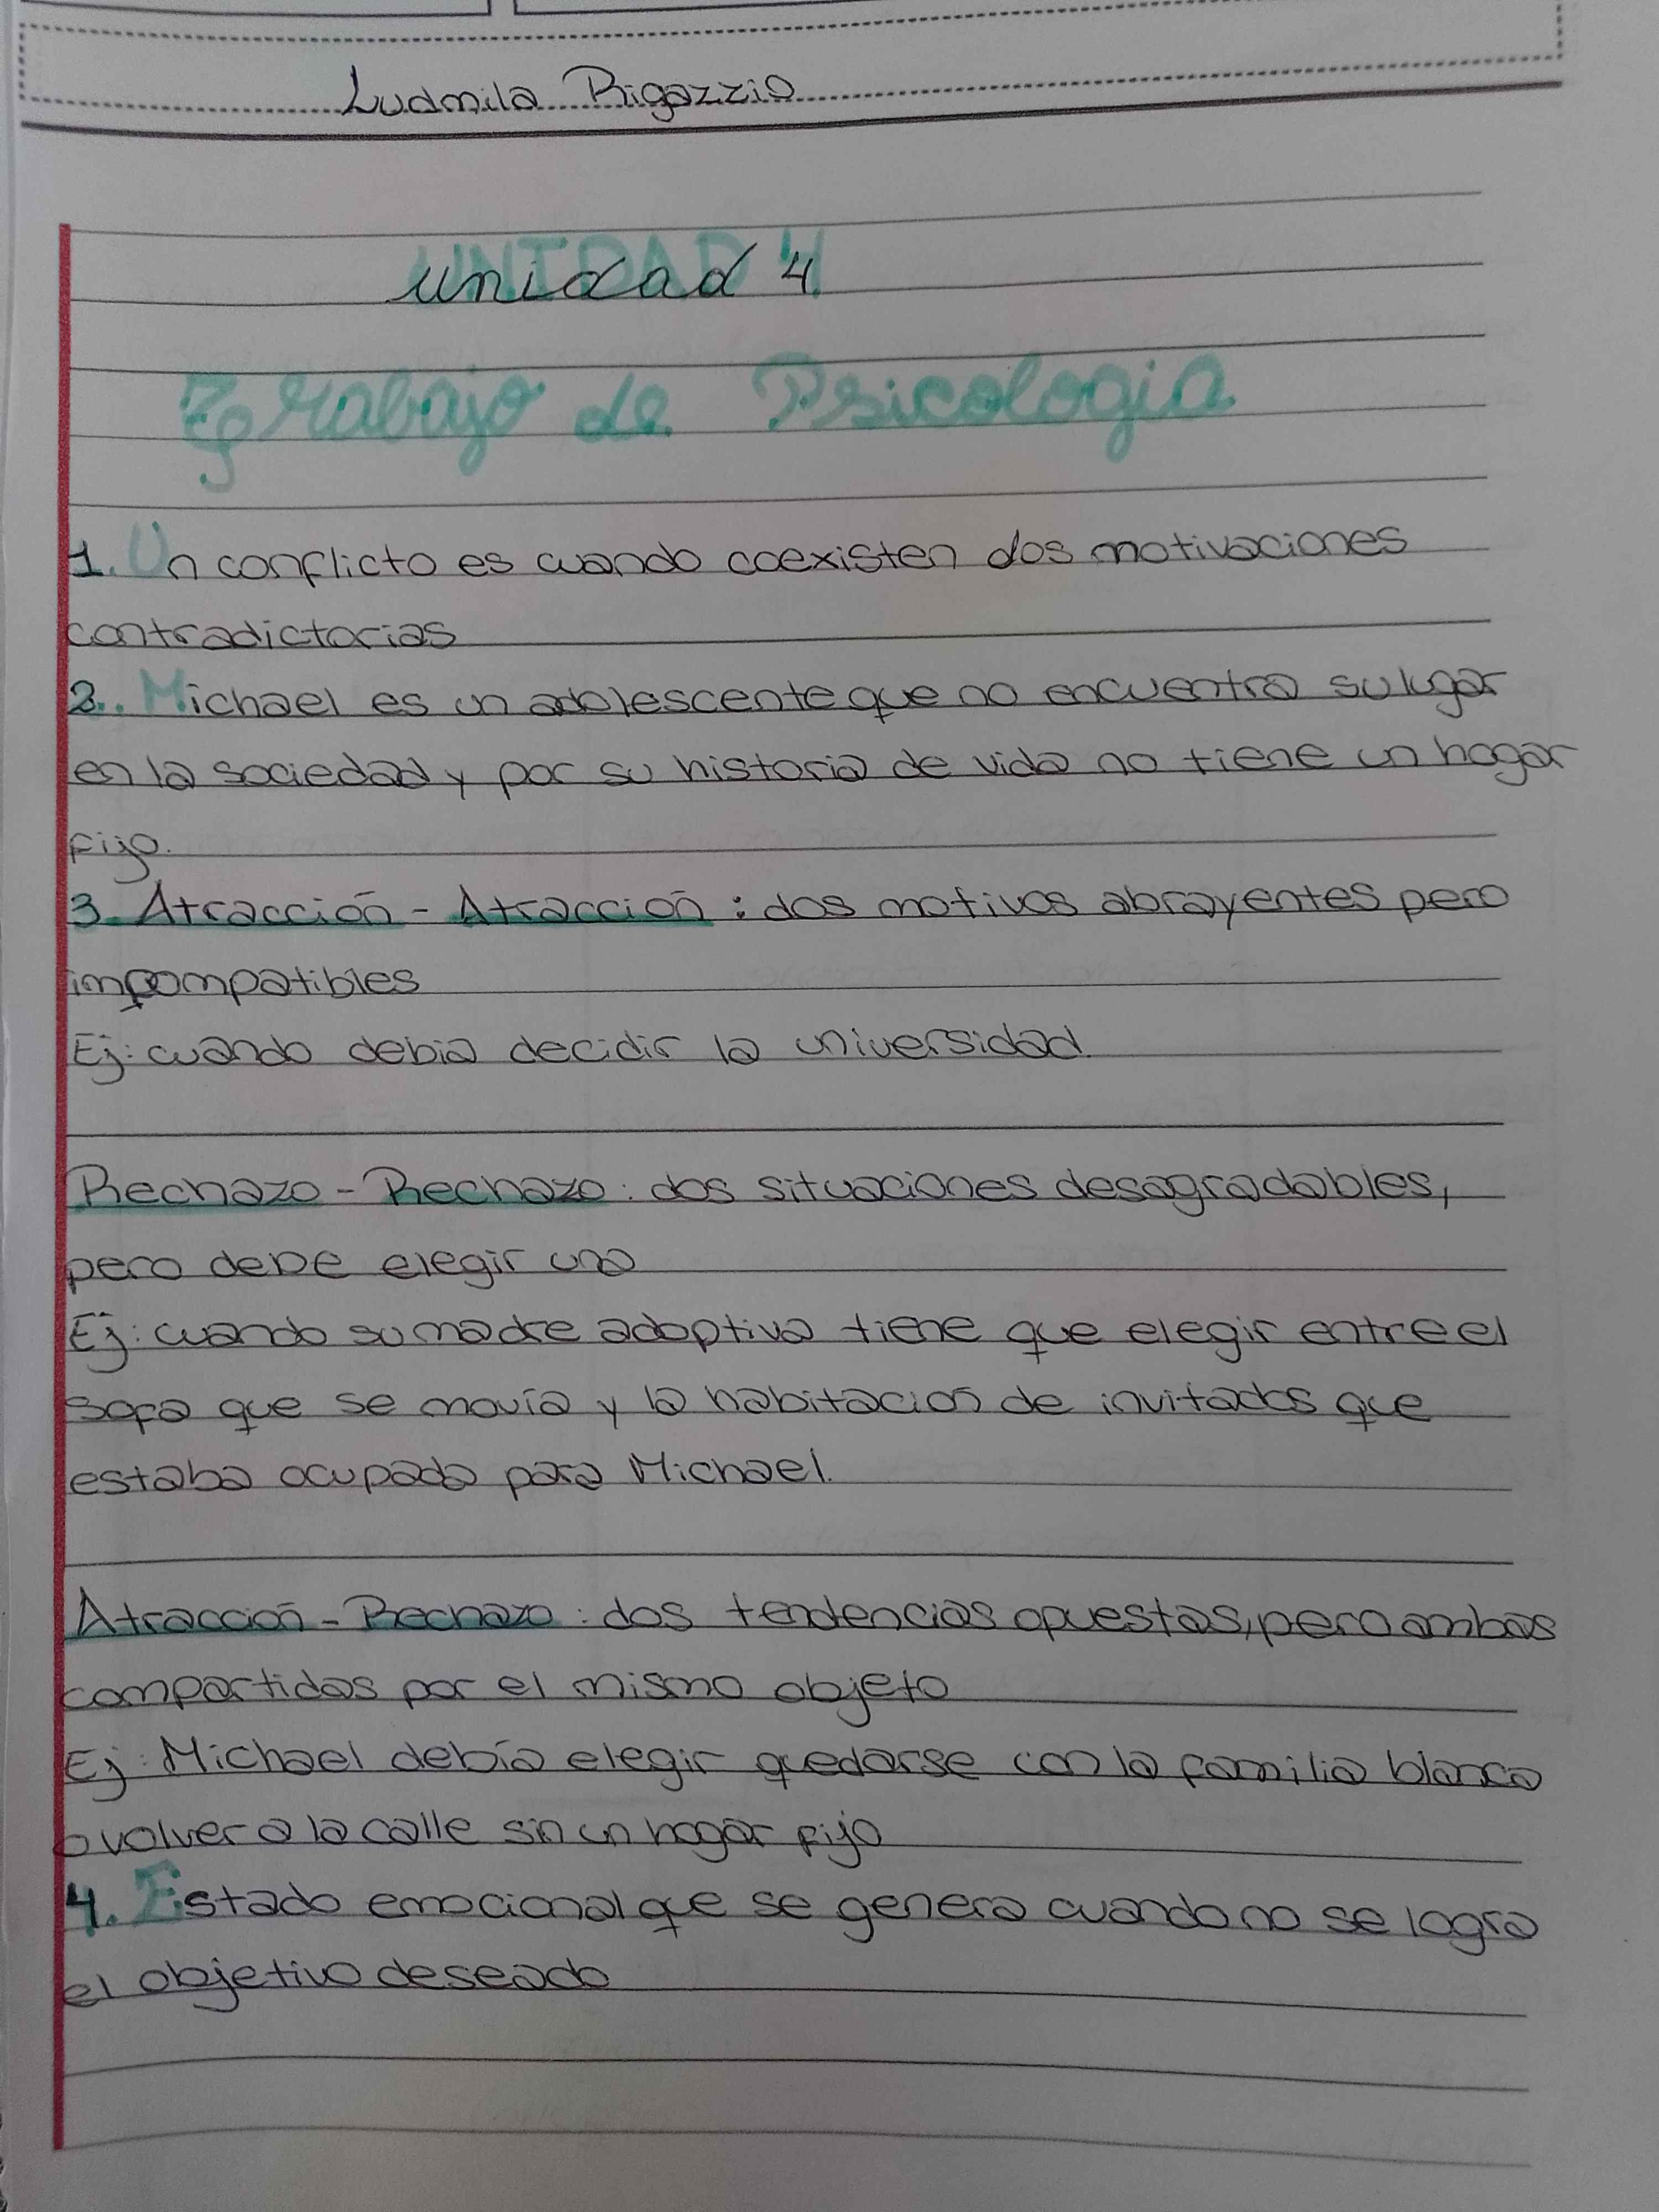 Ludmila Rigazzio
Unidad 4
Trabajo de Psicologia
1. Un conflicto es cuando coexisten dos motivaciones
contradictorias
2. Michael es un adolescente que no encuentra su lugar
en la sociedad y por su historia de vida no tiene un hogar
fijo.
3. Atracción - Atracción : dos motivos abrayentes pero
impompatibles
Ej: cuando debia decidir la universidad.
Rechazo - Rechazo : dos situaciones desagradables,
pero debe elegir una
Ej: cuando su madre adoptiva tiene que elegir entre el
sofa que se movía y la habitación de invitados que
estaba ocupada para Michael.
Atracción - Rechazo : dos tendencias opuestas, pero ambas
compartidas por el mismo objeto
Ej: Michael debía elegir quedarse con la familia blanca
o volver a la calle sin un hogar fijo
4. Estado emocional que se genera cuando no se logra
el objetivo deseado